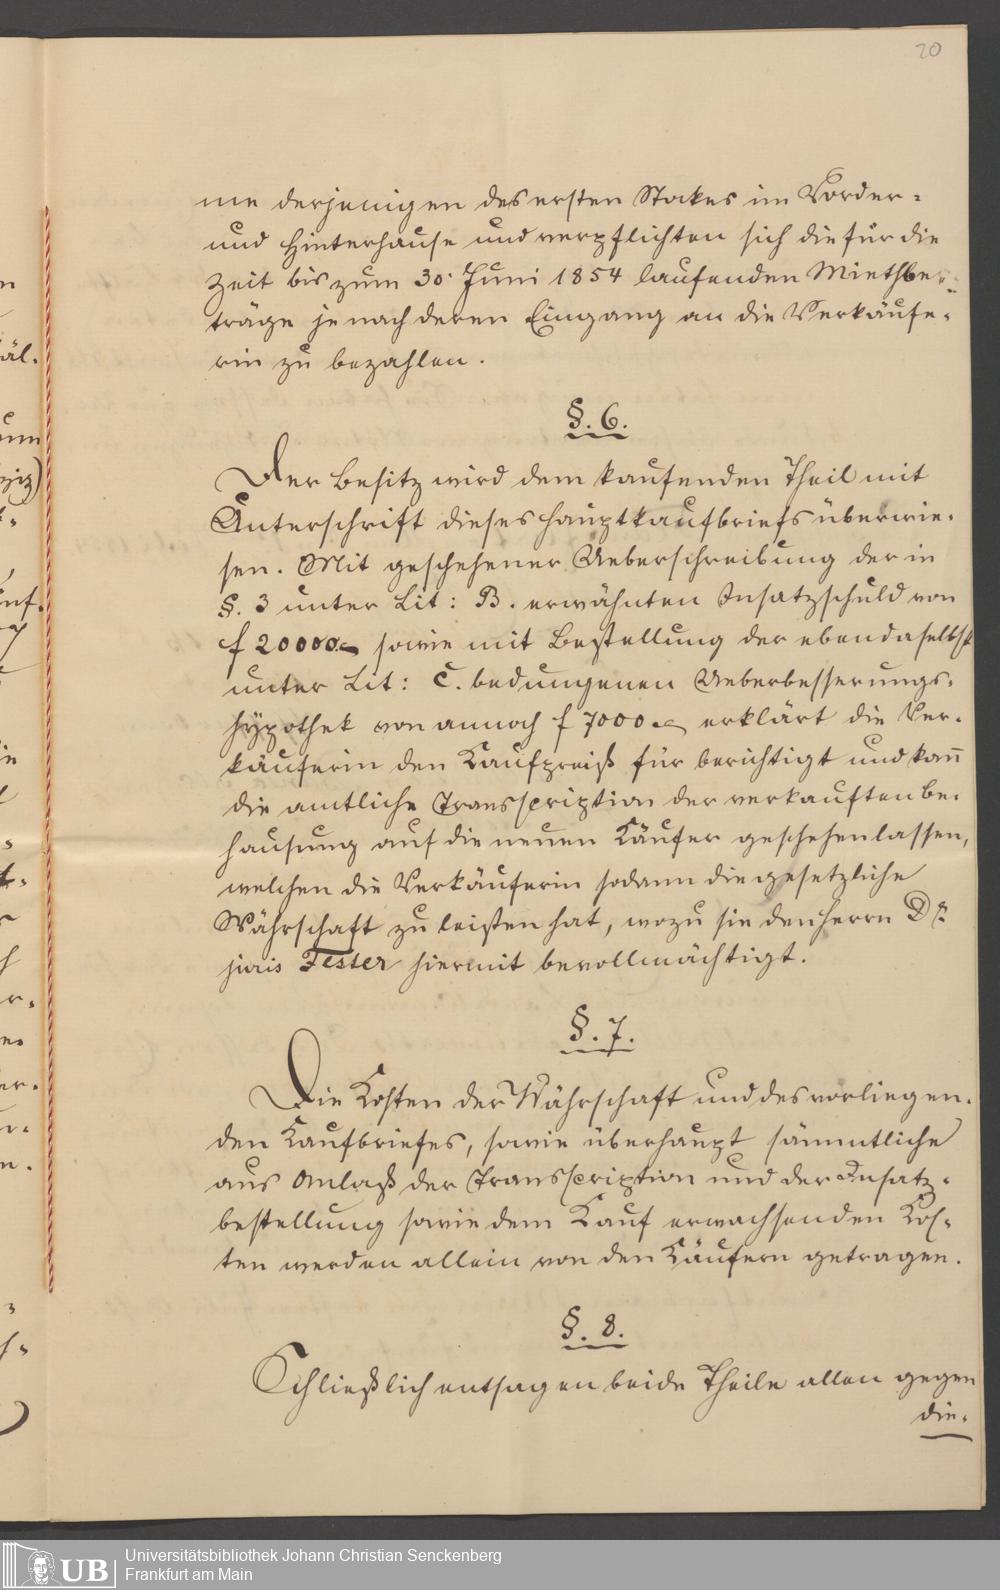 20
me derjenigen des ersten Stockes im Vorder-
und Hinterhause und verpflichten sich die für die
Zeit bis zum 30. Juni 1854 laufenden Miethbe-
träge je nach deren Eingang an die Verkäufe-
rin zu bezahlen.
§. 6.
Der Besitz wird dem kaufenden Theil mit
Unterschrift dieses Hauptkaufbriefs überwie-
sen. Mit geschehener Ueberschreibung der in
§. 3 unter Lit: B. erwähnten Insatzschuld von
f 20000.– sowie mit Bestellung der ebendaselbst
unter Lit: C. bedungenen Ueberbesserungs-
hypothek von annoch f 7000.– erklärt die Ver-
käuferin den Kaufpreiß für berichtigt und kann̄
die amtliche Transscription der verkauften Be-
hausung auf die neuen Käufer geschehen lassen,
welchen die Verkäuferin sodann die gesetzliche
Währschaft zu leisten hat, wozu sie den Herrn Dr.
juris Fester hiermit bevollmächtigt.
§. 7.
Die Kosten der Währschaft und des vorliegen-
den Kaufbriefes, sowie überhaupt sämmtliche
aus Anlaß der Transscription und der Insatz-
bestellung sowie dem Kauf erwachsenden Kos-
ten werden allein von den Käufern getragen.
§. 8.
Schließlich entsagen beide Theile allen gegen
die-
UB
Universitätsbibliothek Johann Christian Senckenberg
Frankfurt am Main